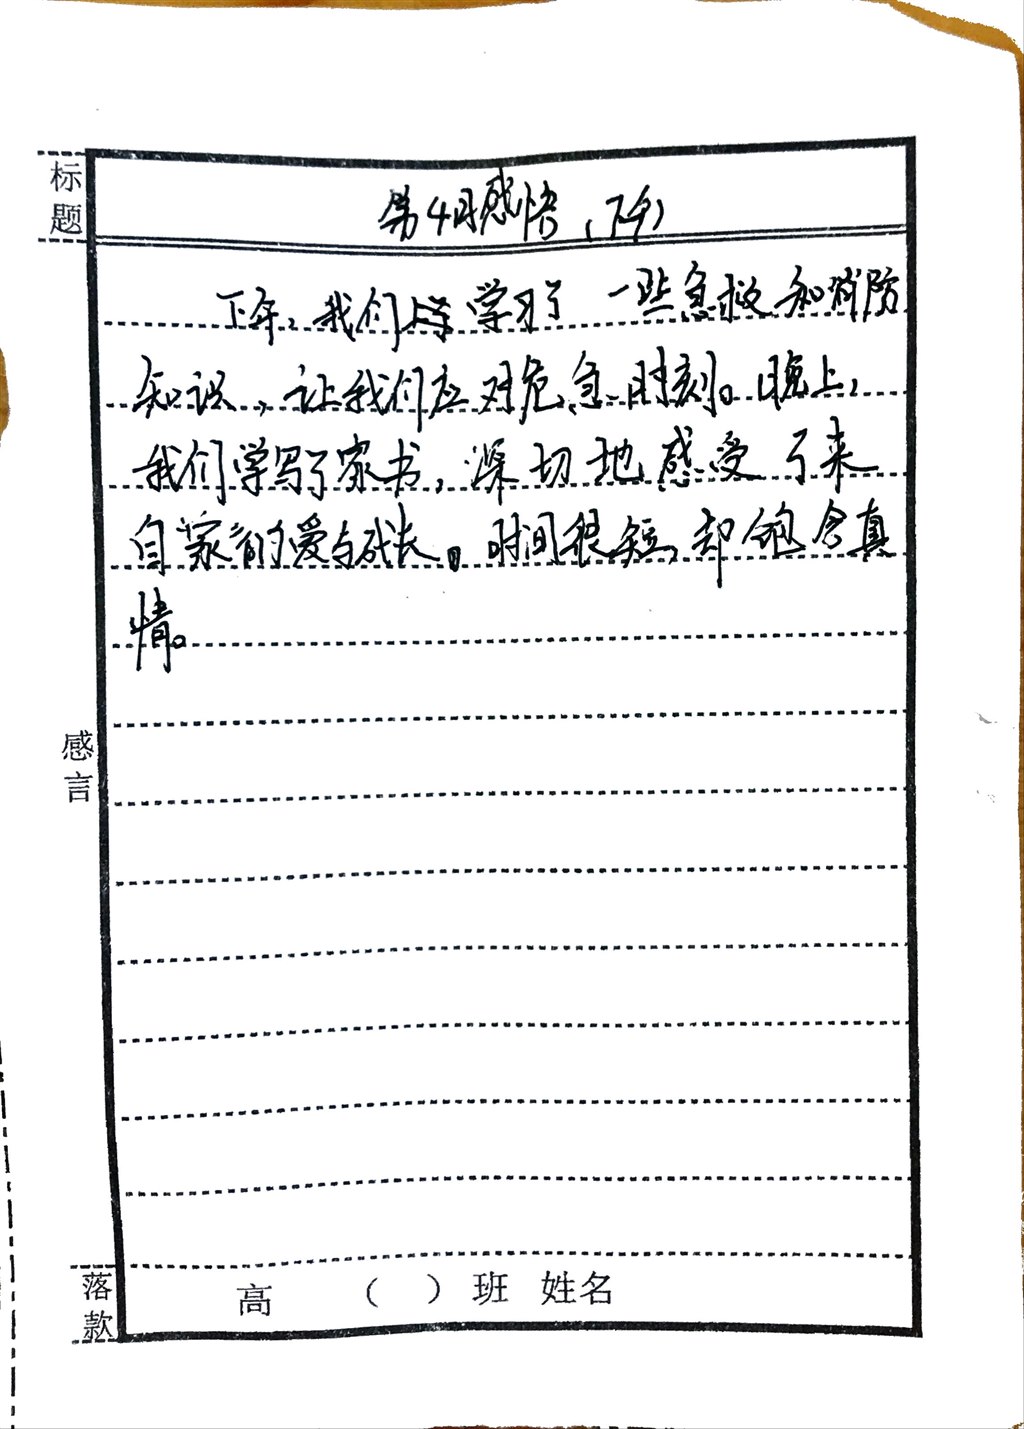 标题
第4日感悟（下午）
下午，我们学习了一些急救和消防
知识，让我们应对危急时刻。晚上，
我们学写了家书，深切地感受了来
自家的爱与成长。时间很短，却饱含真
情。
感言
落款
高 （ ）班 姓名